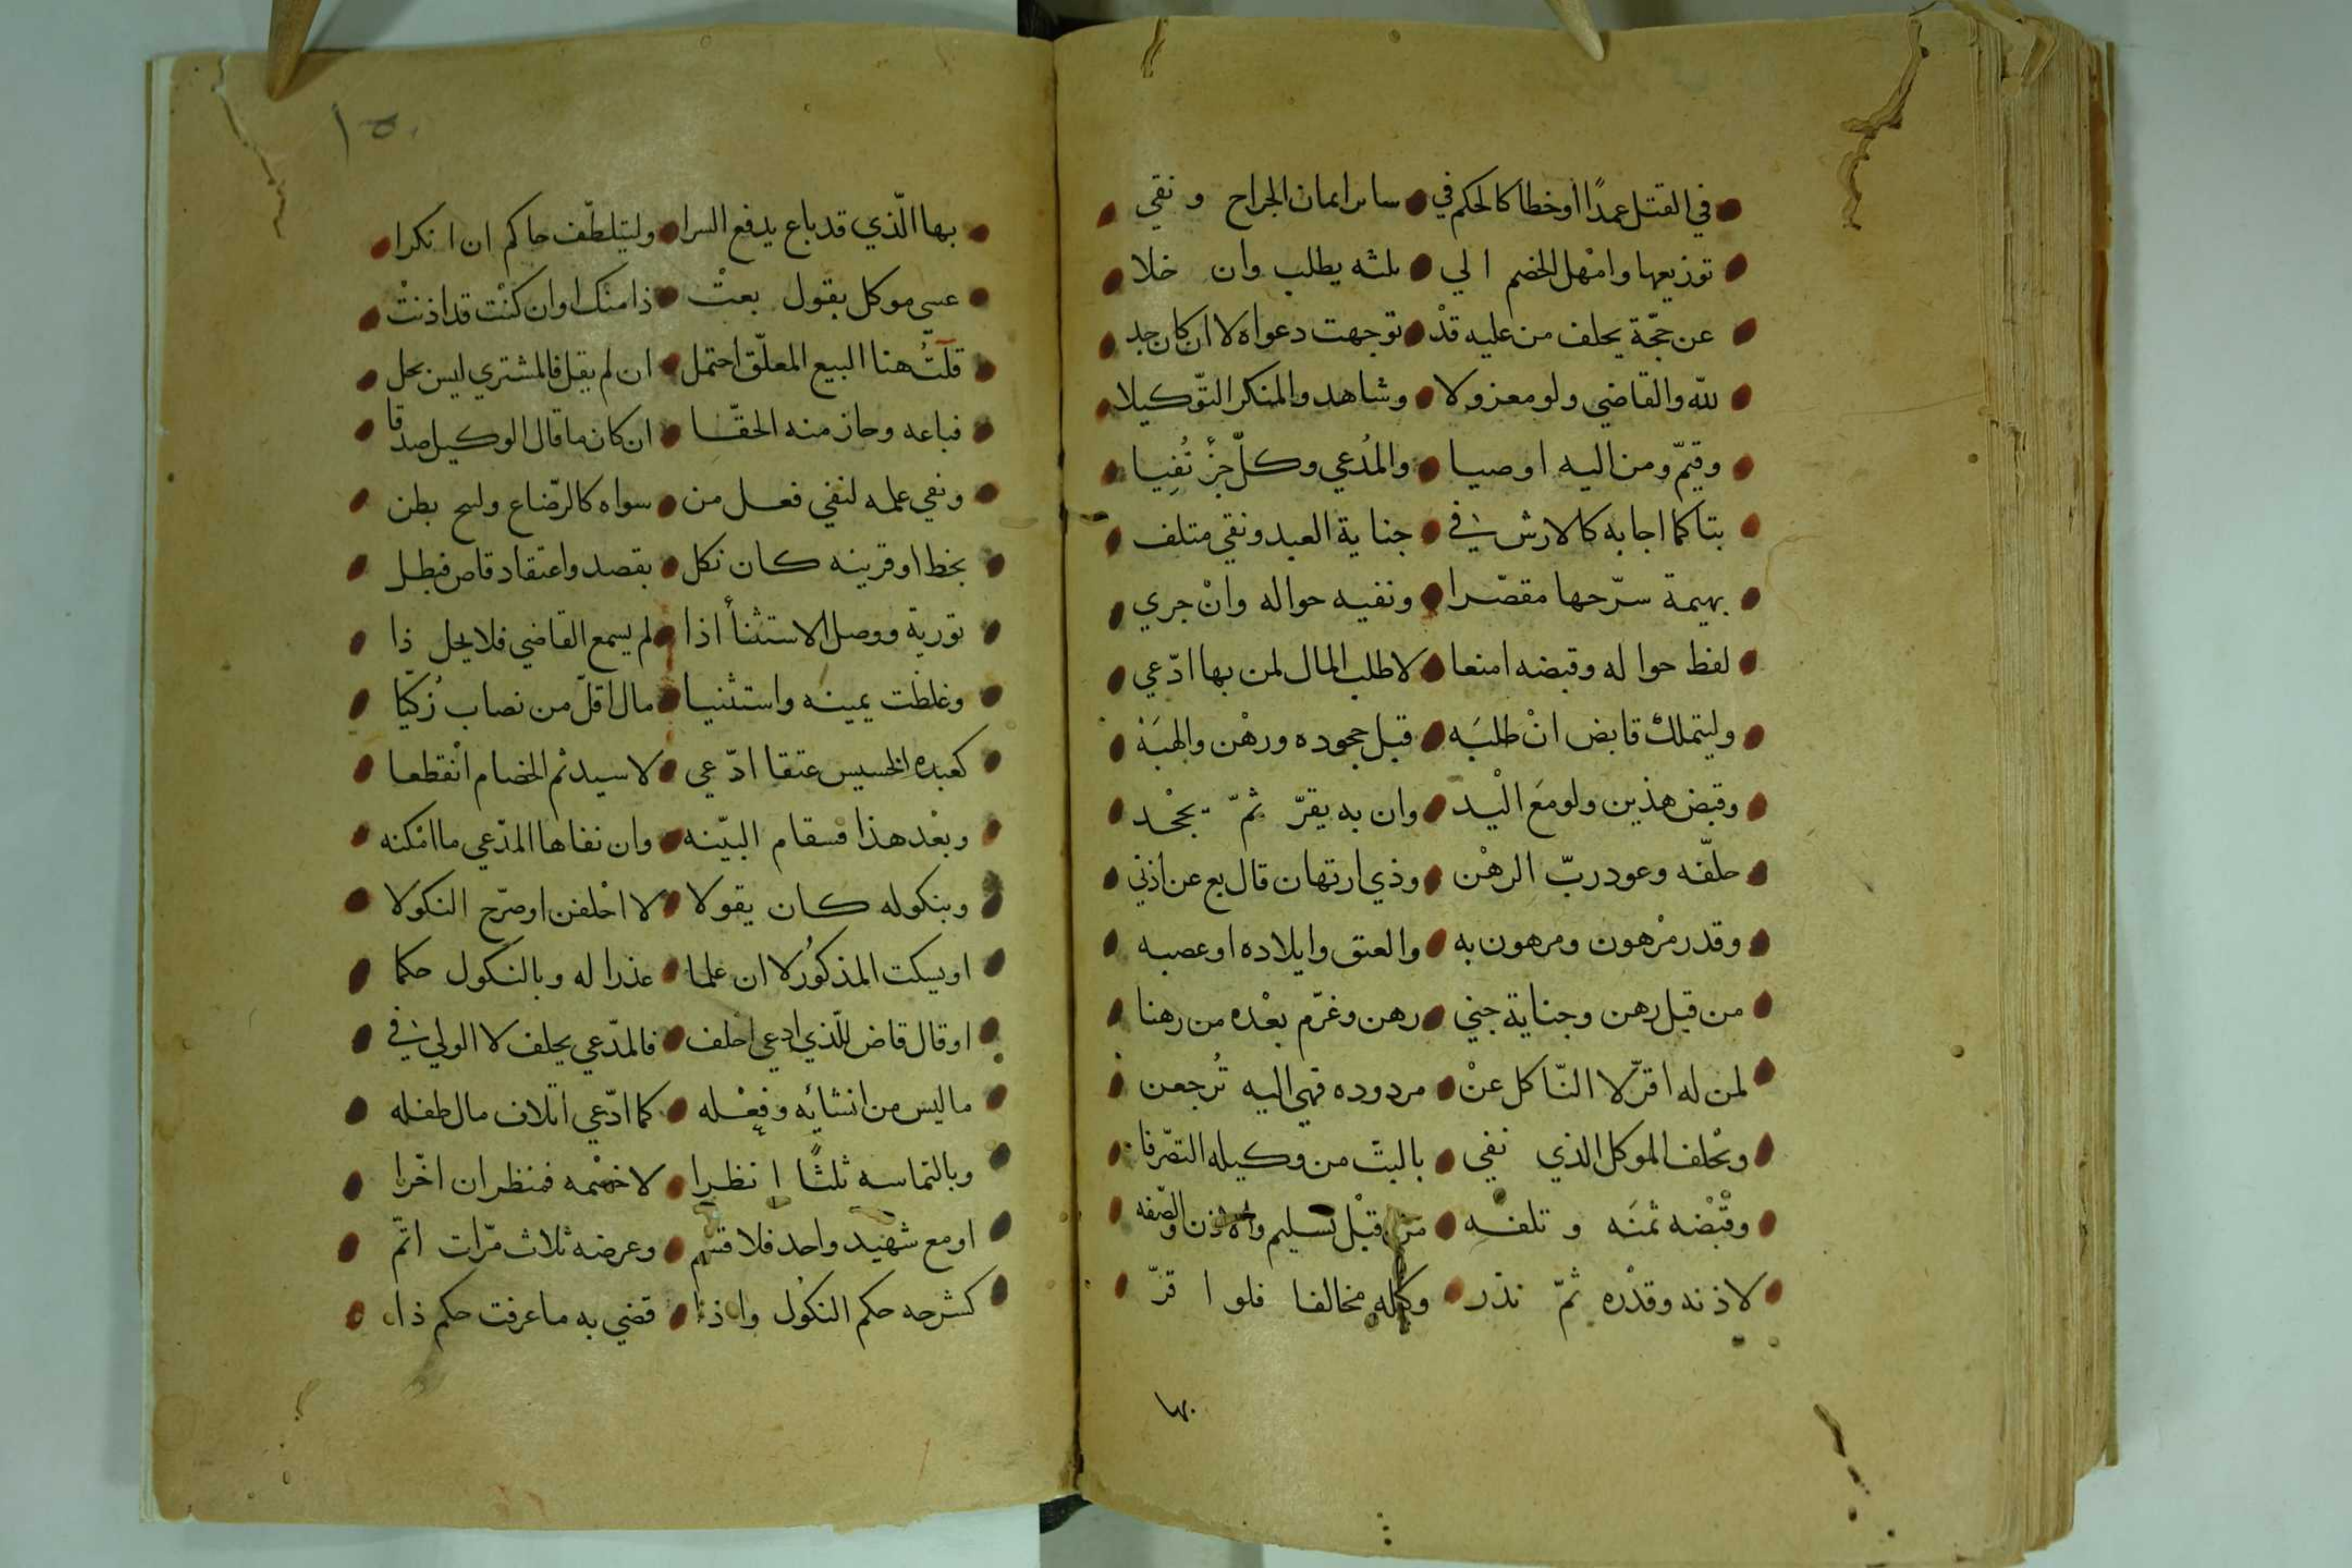 في القتل عمدًا أو خطا كالحكم في سائر ايمان الجراح ونفي
توزيعها وامْهل الخصم الي ثلثه يطلب وان خلا
عن حجّة يحلف من عليه قدْ توجهت دعواه لا ان كان حد
لله والقاضي ولو معزولا وشاهد والمنكر التّوكيلا
وقيّم ومن اليه اوصيا والمُدعي وكلّ جزْ نُفِيا
بتا كما اجابه كالارش في جناية العبد ونفي متلف
بهيمة سرّحها مقصّرا ونفيه حواله وانْ جري
لفظ حواله وقبضه امنعا لا طلب المال لمن بها ادّعي
وليتملكْ قابض انْ طلبَه قبل جحوده ورهْن والهبَهْ
وقبض هذين ولو مَع الْيد وان به يقرّ ثمّ يجْحد
حلّفه وعود ربّ الرهْن وذي ارتهان قال بع عن اذني
وقدر مرْهون ومرهون به والعتق وايلاده او غصبه
من قبل رهن وجناية جني رهن وغرّم بعْده من رهنا
لمن له اقرّ لا النّاكل عنْ مردوده فهي اليه تُرجعن
ويحْلف الموكل الذي نفي بالبتّ من وكيله التصّرفا
وقبْضه ثمنَه وتلفه من قبْل تسليم والاذن والصّفه
لاذنه وقدْره ثمّ نذر وكيله مخالفا فلو اقرّ
بها
١٥٠
بها الّذي قد باع يدفع الشرا وليتلطّف حاكم ان انكرا
عسى موكل يقول بعتْ ذا منك او ان كنْت قد اذنتْ
قلتُ هنا البيع المعلّق احتمل ان لم يقل فالمشتري ليس يحل
فباعه وحاز منه الحقّا ان كان ما قال الوكيل صدقا
ونفي علمه لنفي فعل من سواه كالرّضاع وليح بظن
بخط او قرينه كان نكل بقصد واعتقاد قاض فبطل
تورية ووصل الاستثنأ اذا لم يسمع القاضي فلا يحل ذا
وغلظت يمينه واستثنيا مال اقلّ من نصاب زُكيّا
كعبده الخسيس عتقا ادّعي لا سيد ثم الخصام انْقطعا
وبعْد هذا فسقام البيّنه وان نفاها المدّعي ما امْكنه
وبنكوله كان يقولا لا احْلفن او صرّح النكولا
او يسكت المذكوُر لا ان علما عذرا له وبالنكول حكما
او قال قاض للّذي ادعي احلف فالمدّعي يحلف لا الولي في
ما ليس من انشائه وفعْله كما ادّعي اتلاف مال طفله
وبالتماسه ثلثًا انظرا لا خصْمه فمنظر ان اخّرا
او مع شهيد واحد فلا قسم وعرضه ثلاث مرّات اتمّ
كشرحه حكم النكوُل واذا قضي به ما عرفت حكم ذا